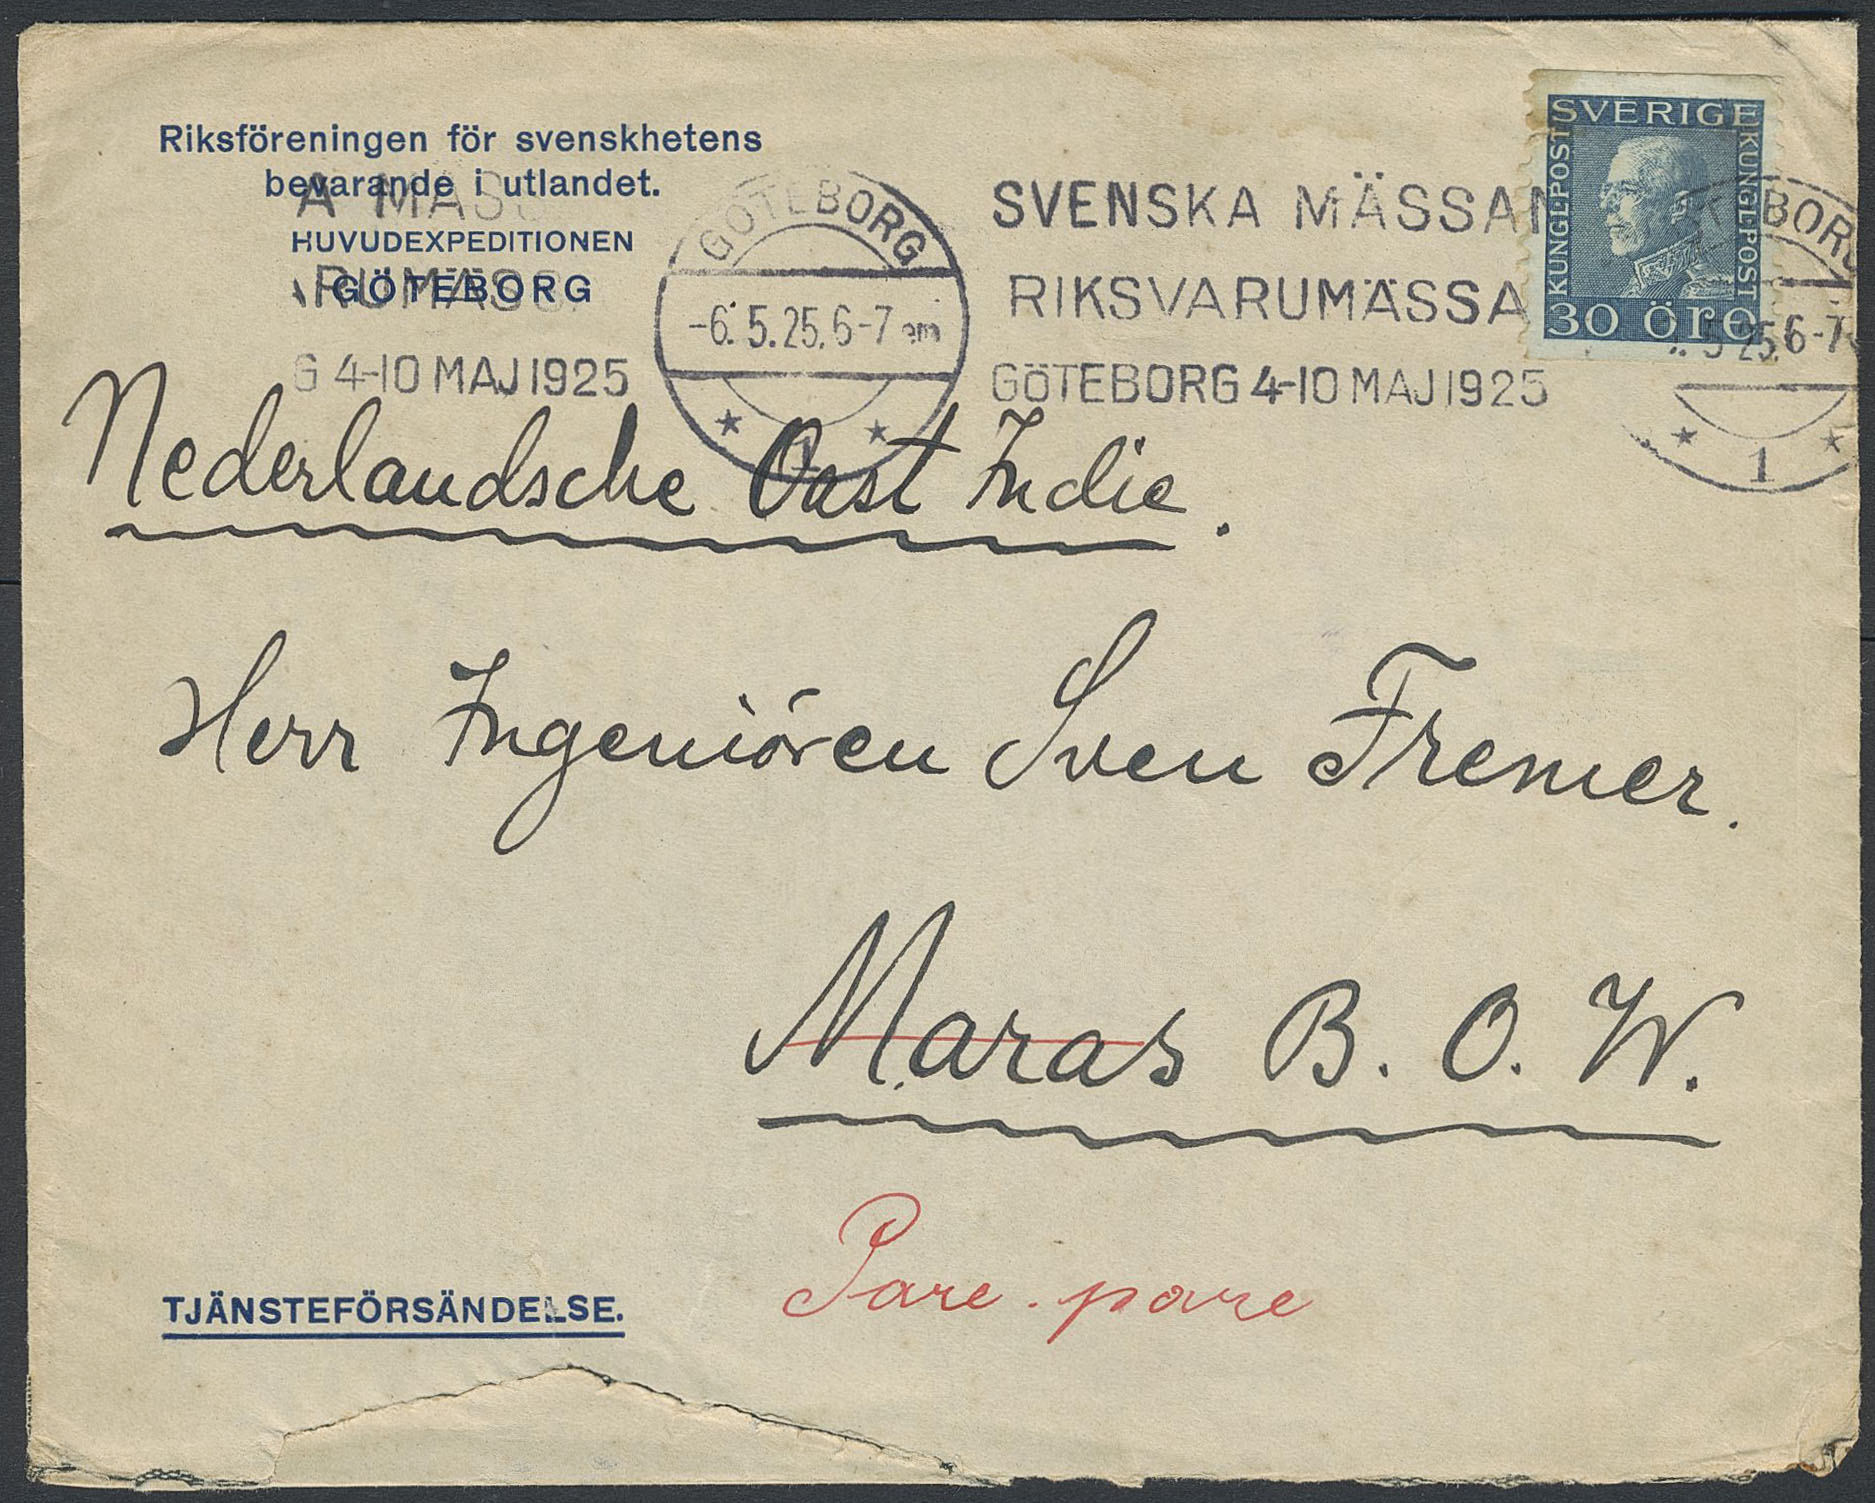 Riksföreningen för svenskhetens
bevarande i utlandet.
HUVUDEXPEDITIONEN
GÖTEBORG
G 4-10 MAJ 1925
GÖTEBORG
-6.5.25.6-7 em
1
SVENSKA MÄSSAN
RIKSVARUMÄSSA
GÖTEBORG 4-10 MAJ 1925
SVERIGE
KUNGL POST
KUNGL POST
30 öre
BORG
5 25.6-7
1
Nederlandsche Oost Indie.
Herr Ingeniören Sven Fremer.
Maras B. O. W.
Pare-pare
TJÄNSTEFÖRSÄNDELSE.